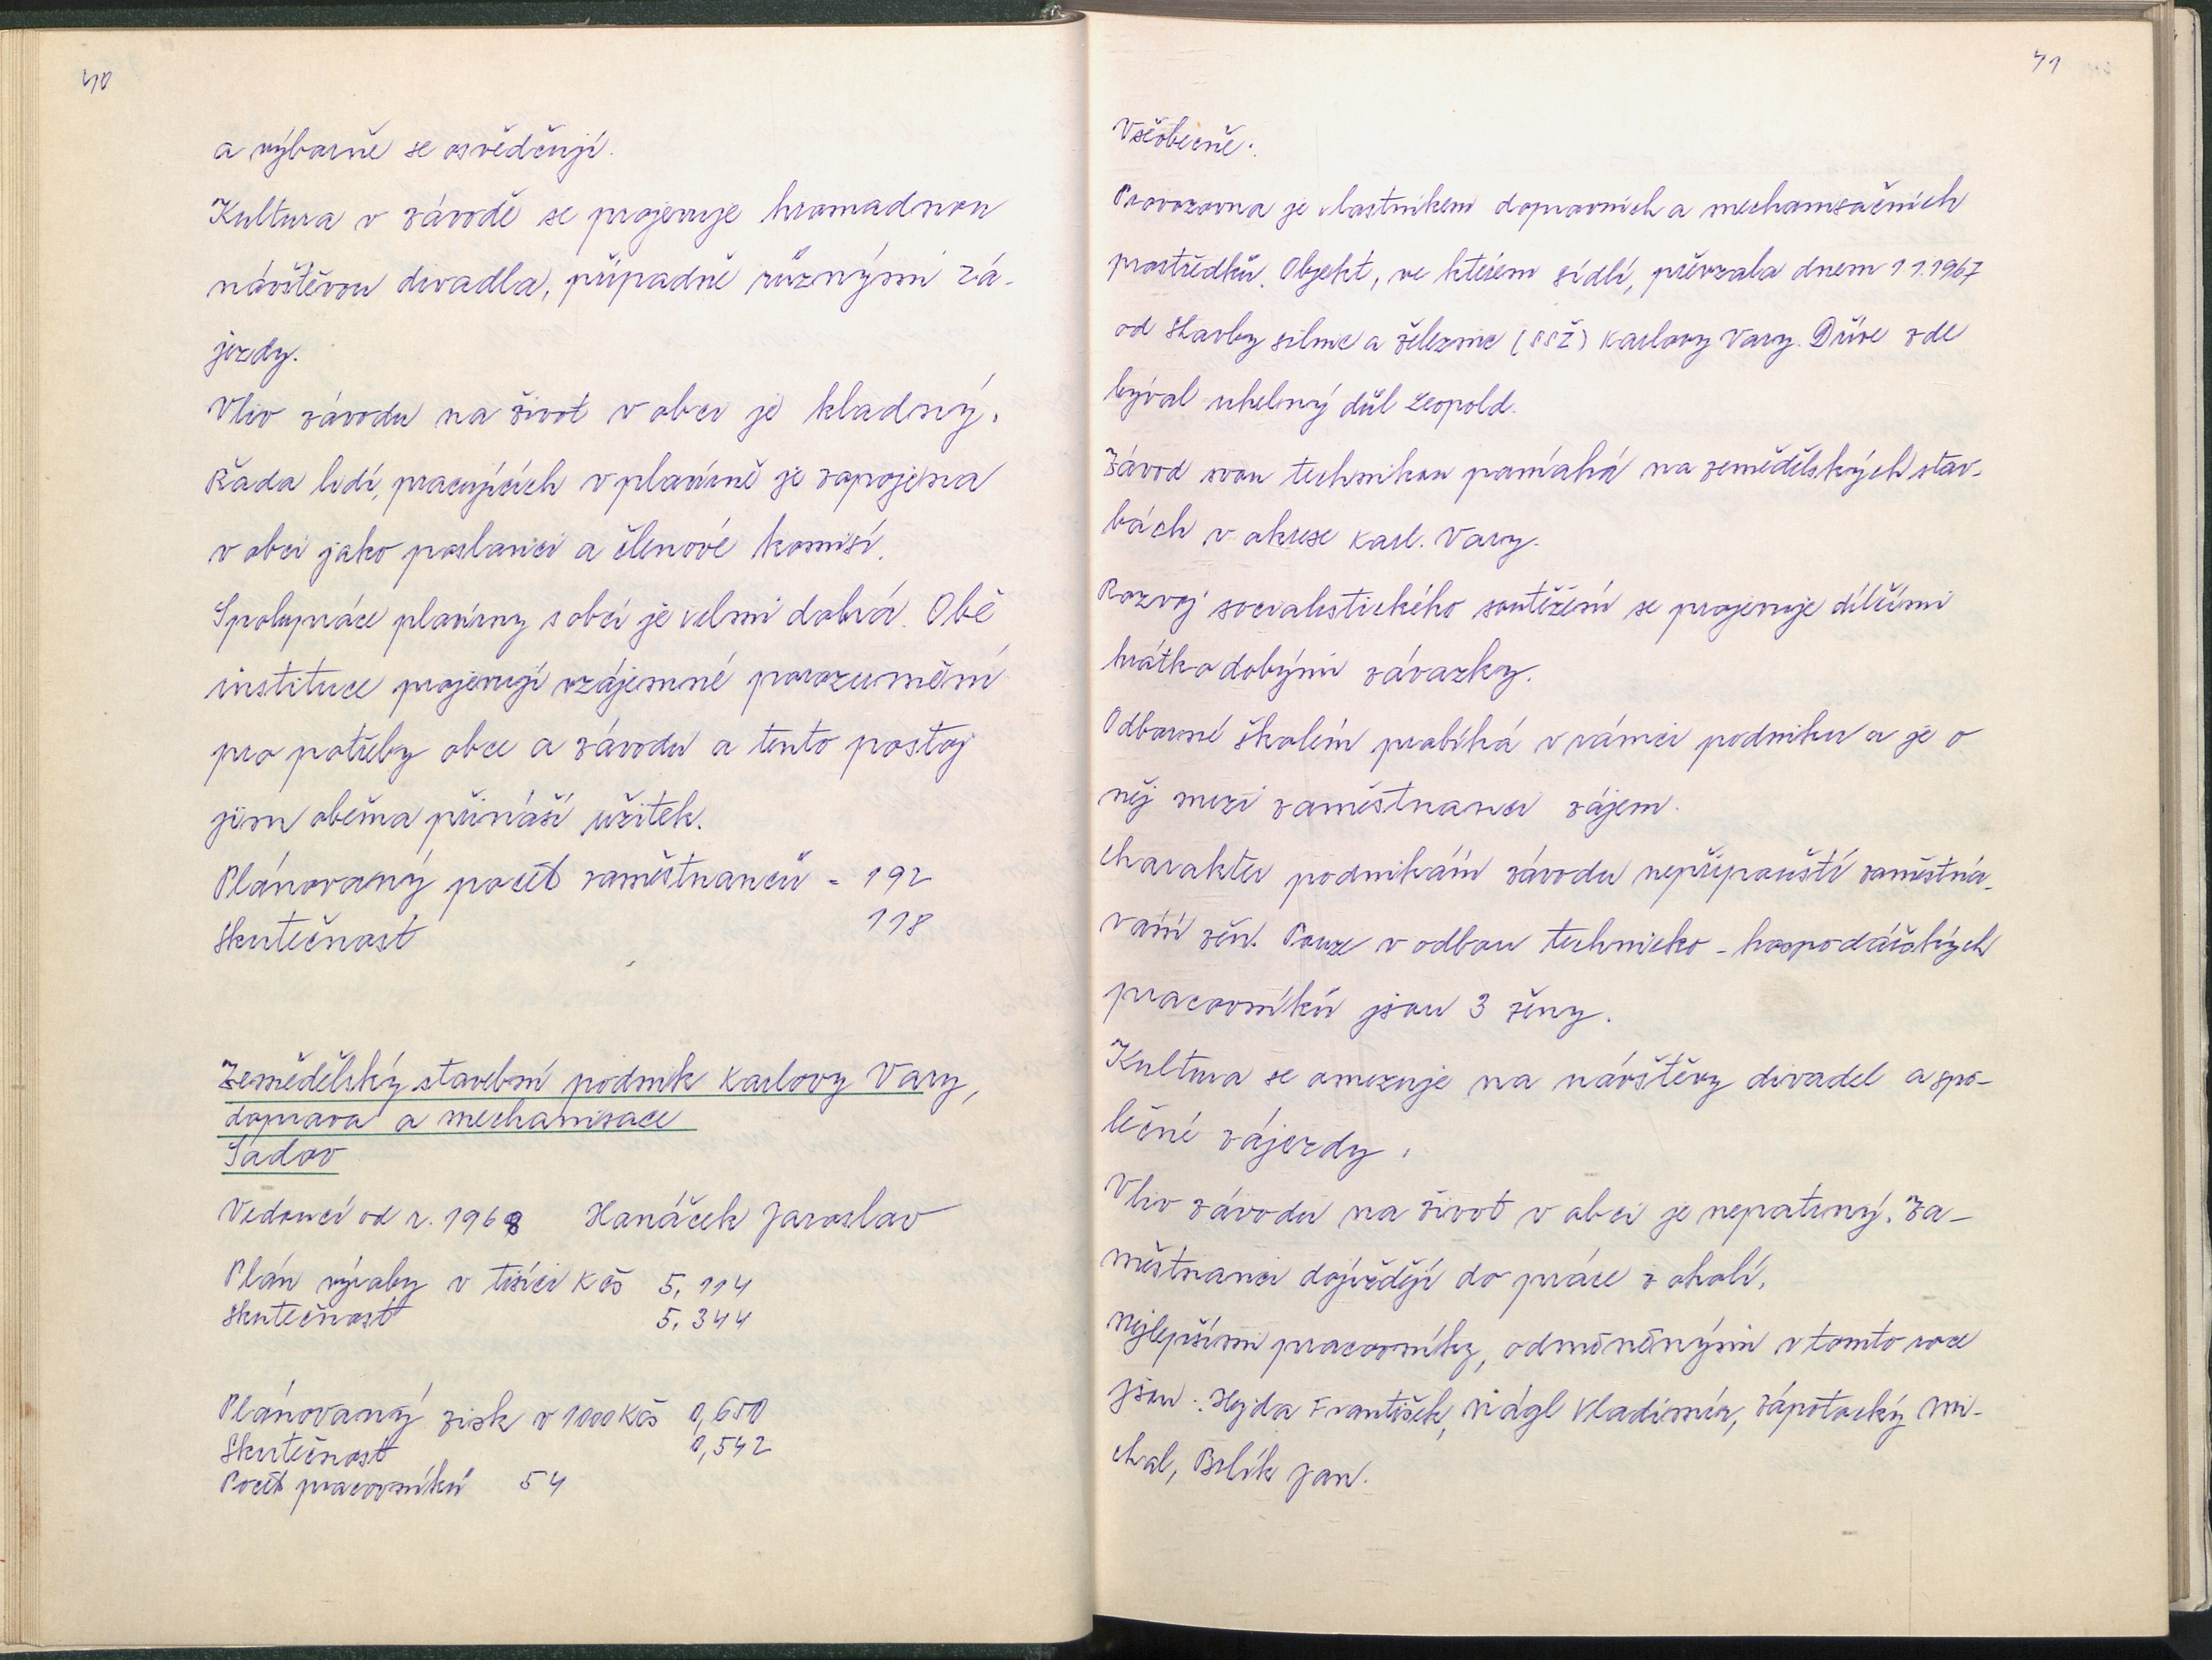 40
a výborně se osvědčují.
Kultura v závodě se projevuje hromadnou
návštěvou divadla, případně různými zá-
jezdy.
Vliv závodu na život v obci je kladný.
Řada lidí, pracujících v plavírně je zapojena
v obci jako poslanci a členové komisí.
Spolupráce plavírny s obcí je velmi dobrá. Obě
instituce projevují vzájemné porozumění
pro potřeby obce a závodu a tento postoj
jim oběma přináší užitek.
Plánovaný počet zaměstnanců - 192
Skutečnost 118
Zemědělský stavební podnik Karlovy Vary,
doprava a mechanisace
Sadov
Vedoucí od r. 1968 Hanáček Jaroslav
Plán výroby v tisíci Kčs 5.114
Skutečnost 5.344
Plánovaný zisk v 1000 Kčs 0,650
Skutečnost 0,542
Počet pracovníků 54
41
Všeobecně:
Provozovna je vlastníkem dopravních a mechanisačních
prostředků. Objekt, ve kterém sídlí, převzala dnem 1.1.1967
od Stavby silnic a železnic (SSŽ) Karlovy Vary. Dříve zde
býval uhelný důl Leopold.
Závod svou technikou pomáhá na zemědělských stav-
bách v okrese Karl. Vary.
Rozvoj socialistického soutěžení se projevuje dílčími
krátkodobými závazky.
Odborné školení probíhá v rámci podniku a je o
něj mezi zaměstnanci zájem.
Charakter podnikání závodu nepřipouští zaměstná-
vání žen. Pouze v odboru technicko-hospodářských
pracovníků jsou 3 ženy.
Kultura se omezuje na návštěvy divadel a spo-
lečné zájezdy.
Vliv závodu na život v obci je nepatrný. Za-
městnanci dojíždějí do práce z okolí.
Nejlepšími pracovníky, odměněnými v tomto roce
jsou: Hejda František, Nágl Vladimír, Zápotocký Mi-
chal, Brlík Jan.